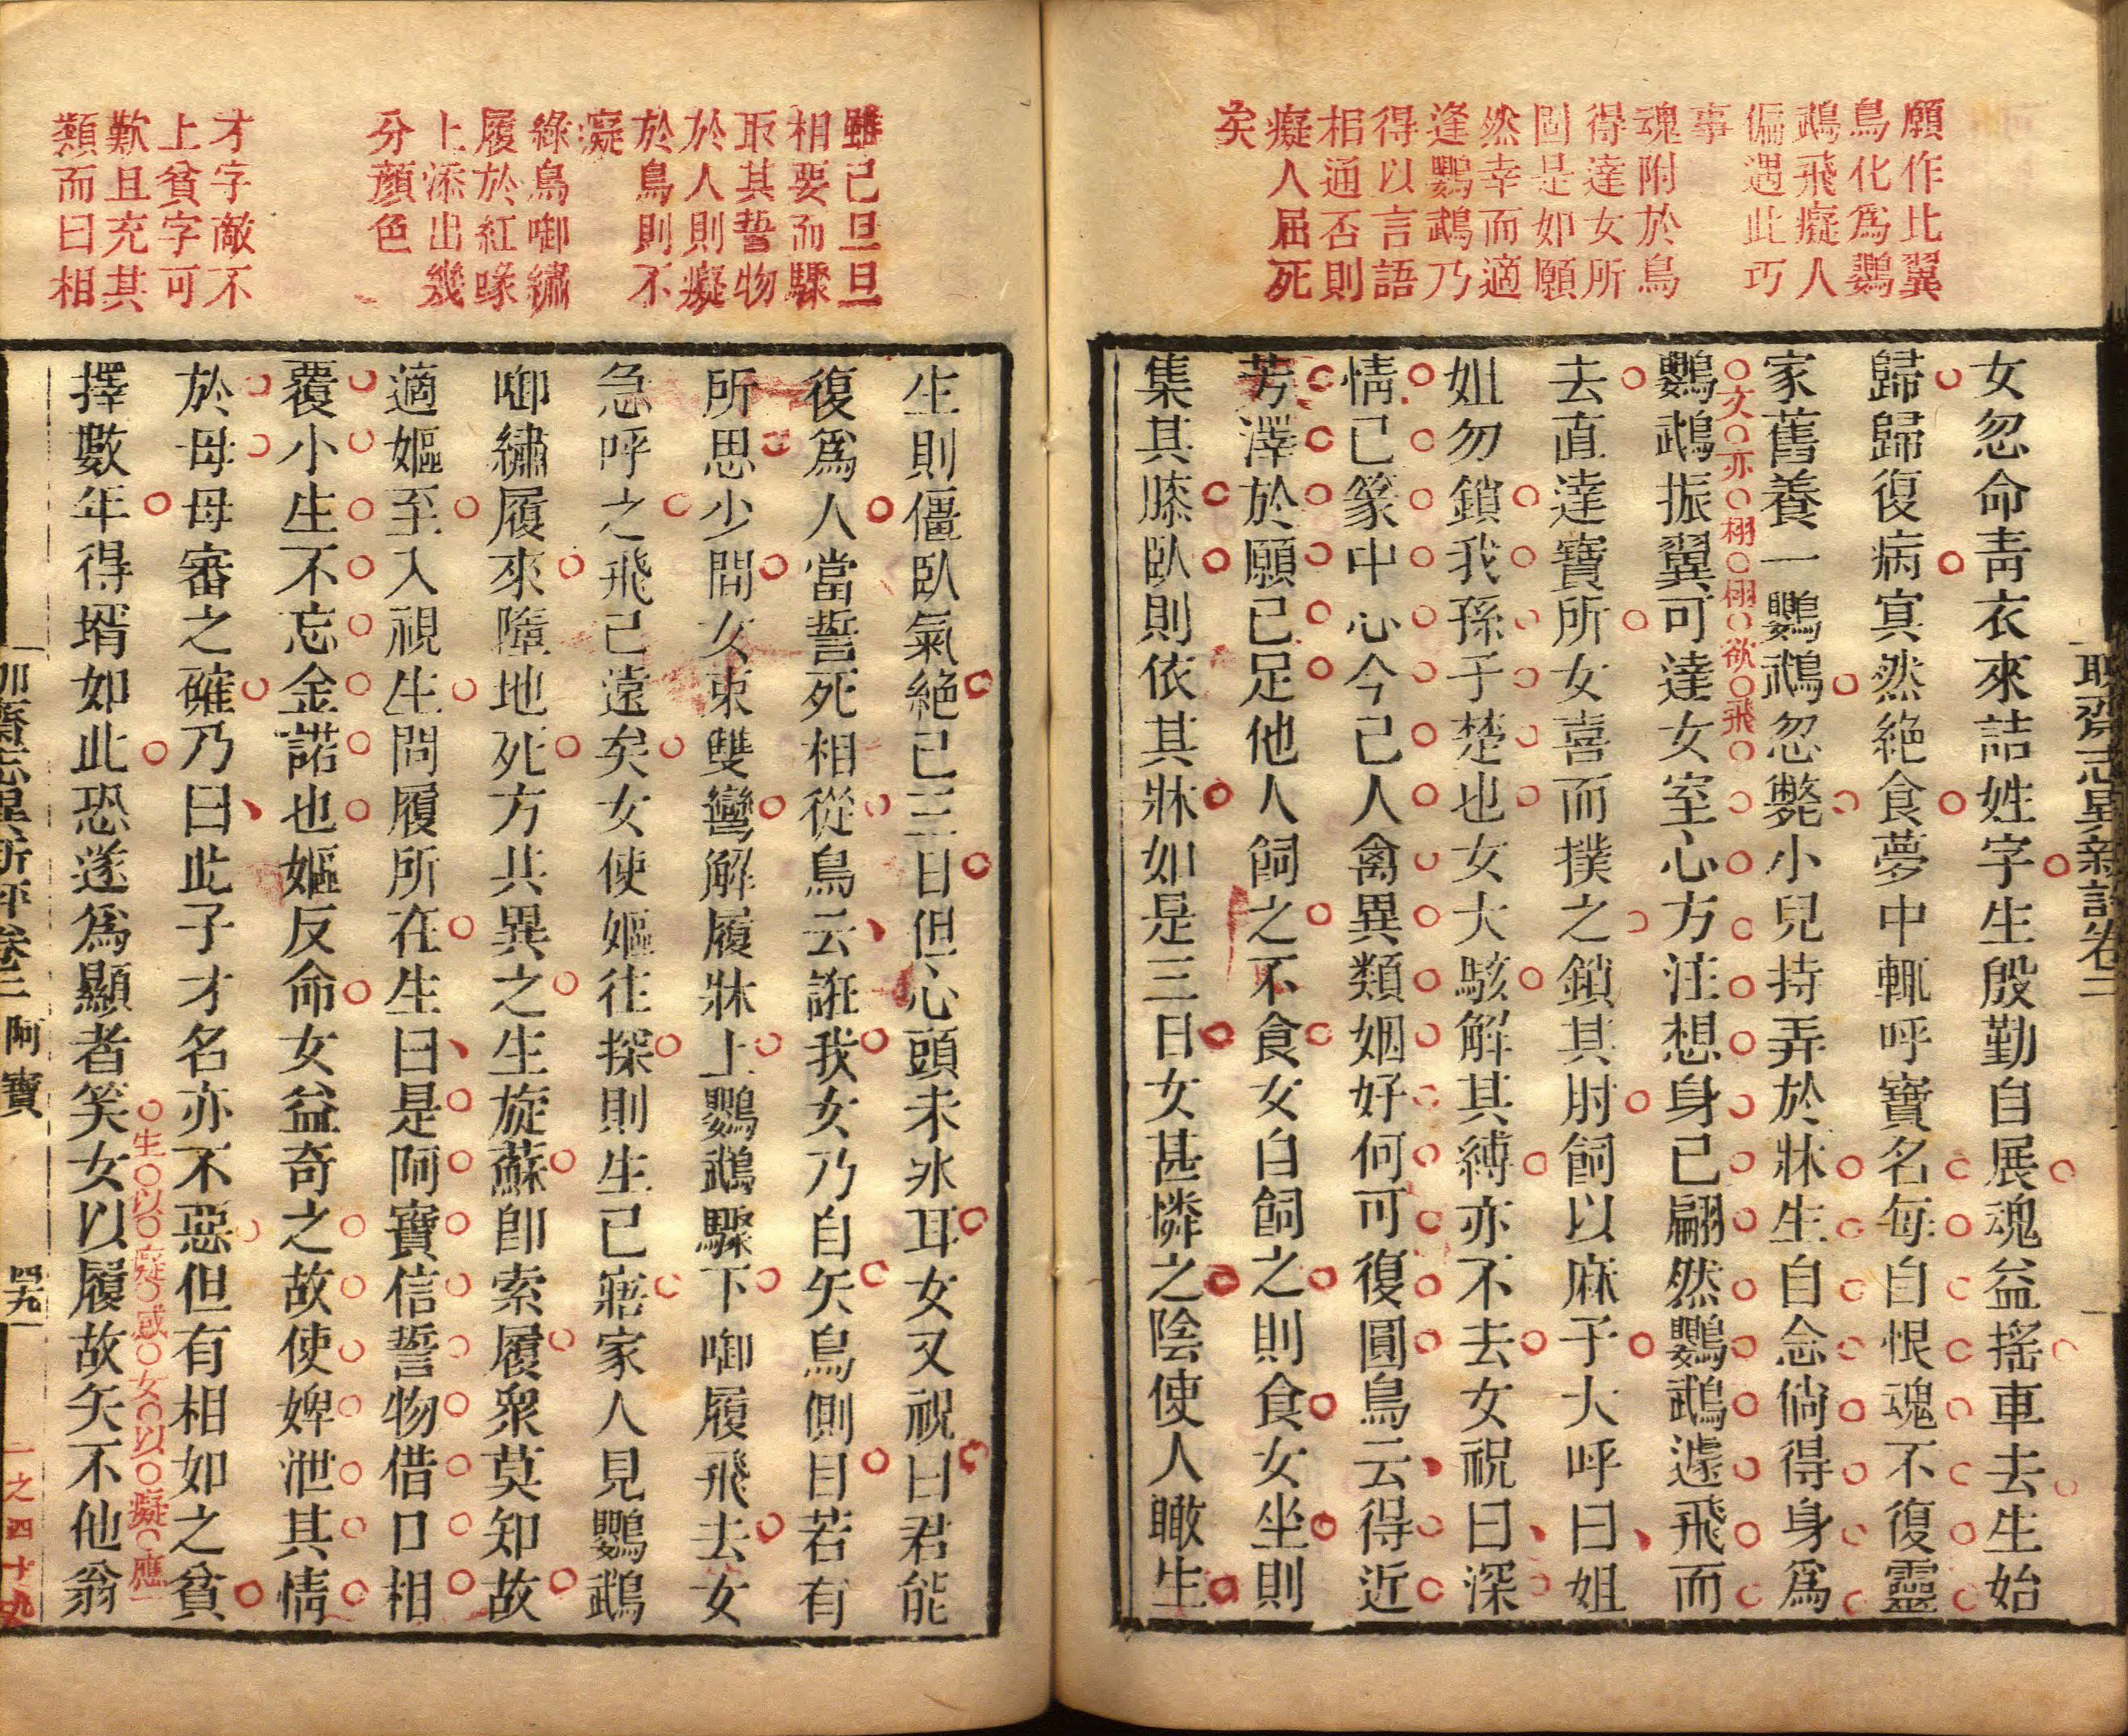 聊齋志異新評卷三
願作比翼
鳥化爲鸚
鵡飛癡人
偏遇此巧
事
魂附於鳥
得達女所
固是如願
然幸而適
逢鸚鵡乃
得以言語
相通否則
癡人屈死
矣
女忽命青衣來詰姓字生殷勤自展魂益搖車去生始
歸歸復病冥然絕食夢中輒呼寶名每自恨魂不復靈
家舊養一鸚鵡忽斃小兒持弄於牀生自念倘得身爲
文○亦○栩○栩○欲○飛○
鸚鵡振翼可達女室心方注想身已翩然鸚鵡遽飛而
去直達寶所女喜而撲之鎖其肘飼以麻子大呼曰姐
姐勿鎖我孫子楚也女大駭解其縛亦不去女祝曰深
情已篆中心今已人禽異類姻好何可復圓鳥云得近
芳澤於願已足他人飼之不食女自飼之則食女坐則
集其膝臥則依其牀如是三日女甚憐之陰使人瞰生
雖已旦旦
相要而驟
取其誓物
於人則癡
於鳥則不
癡
綠鳥啣繡
履於紅喙
上添出幾
分顏色
才字敵不
上貧字可
歎且充其
類而曰相
生則僵臥氣絕已三日但心頭未冰耳女又祝曰君能
復爲人當誓死相從鳥云誑我女乃自矢鳥側目若有
所思少間女束雙彎解履牀上鸚鵡驟下啣履飛去女
急呼之飛已遠矣女使嫗往探則生已寤家人見鸚鵡
啣繡履來墮地死方共異之生旋蘇卽索履衆莫知故
適嫗至入視生問履所在生曰是阿寶信誓物借口相
覆小生不忘金諾也嫗反命女益奇之故使婢泄其情
於母母審之確乃曰此子才名亦不惡但有相如之貧
生○以○癡○感○女○以○癡○應
擇數年得壻如此恐遂爲顯者笑女以履故矢不他翁
聊齋志異新評卷三 阿寶 四九
一之四十九